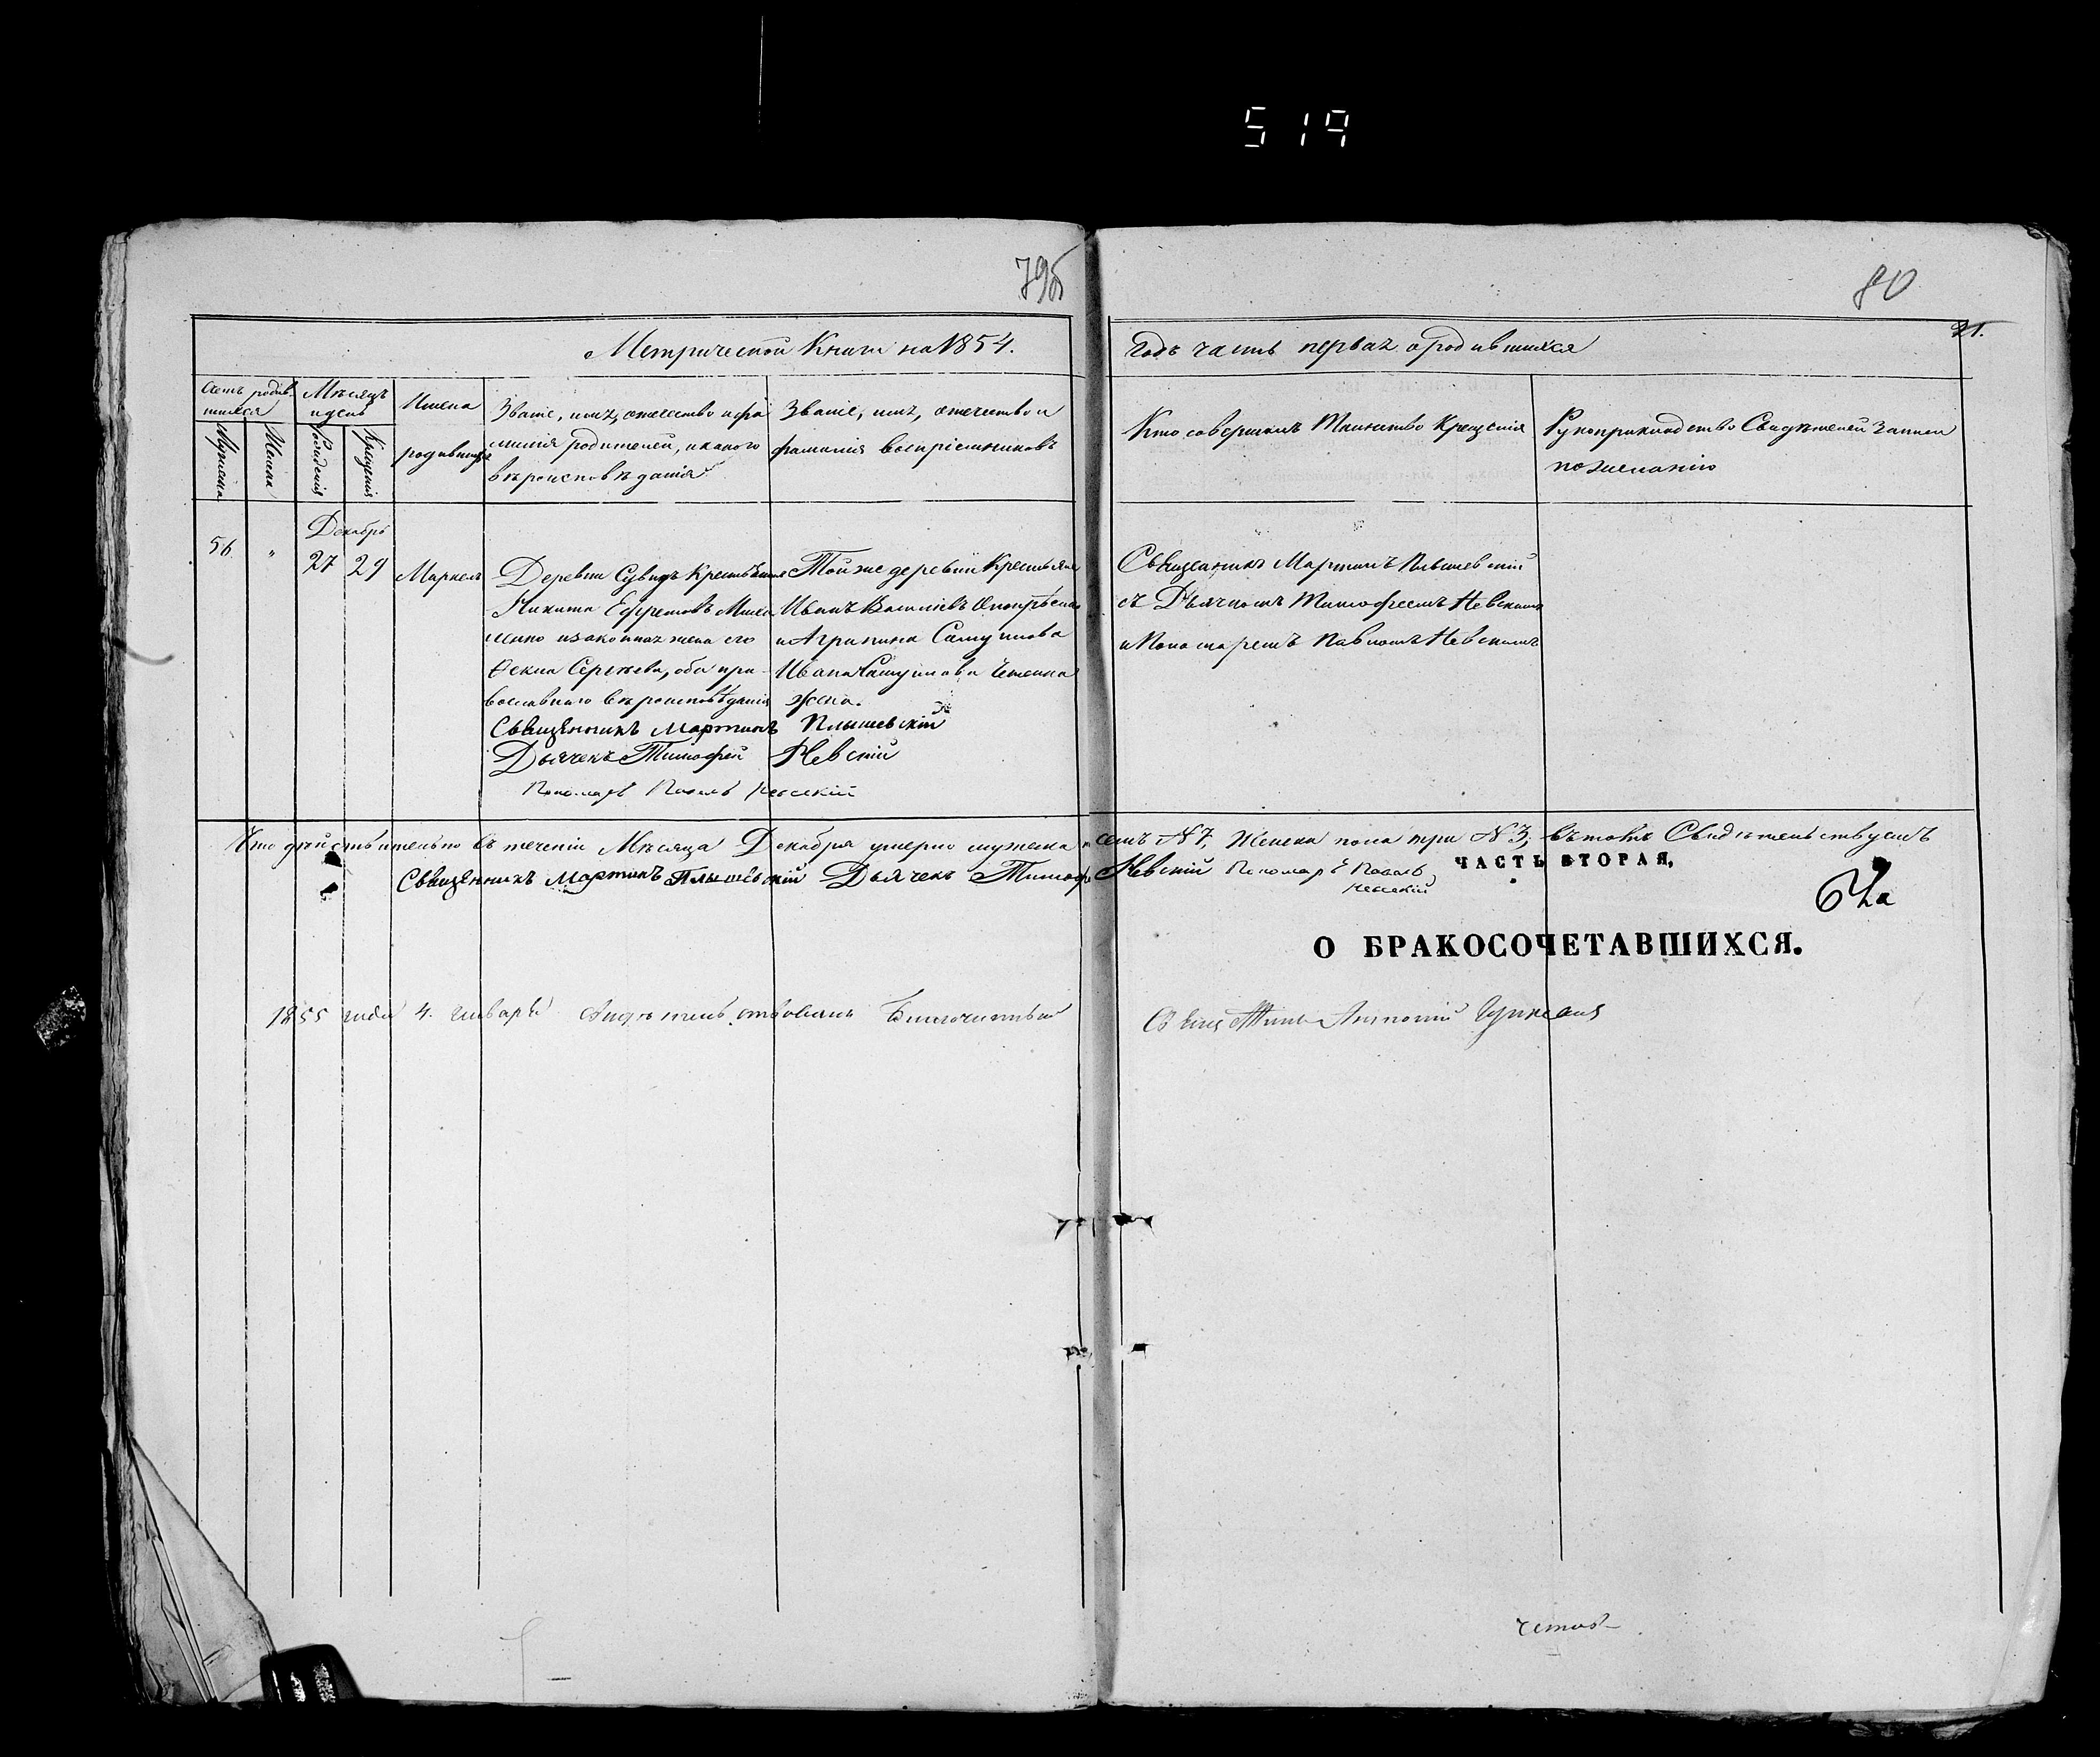 519
79б
80
21.
Метрической Книги на 1854.
годъ часть первая о родившихся
Счетъ родив-
шихся
Мужеска
Женска
Мѣсяцъ
и день
Рожденія
Крещенія
Имена
родившихся
Званіе, имя, отечество и фа
милія родителей, и какого
вѣроисповѣданія
Званіе, имя, отечество и
фамилія воспріемниковъ
Кто совершалъ Таинство Крещенія
Рукоприкладство Свидѣтелей записи
по желанію
56
"
Декабрь
27
29
Маркелъ
Деревни Крестьянинъ
Никита Ефремовъ
и законная жена его
Ѳекла Сергѣева, оба пра-
вославнаго вѣроисповѣданія
Той же деревни Крестьяне
Иванъ Васильевъ
и Агрипина Самуилова
Ивана Самуилова
жена.
Священникъ Мартинъ Плышевскій
Дьячекъ Тимофей Невскій
Пономарь Павелъ Невскій
Священникъ Мартинъ Плышевскій
съ Дьячкомъ Тимофеемъ Невскимъ
и Пономаремъ Павломъ Невскимъ
Что дѣйствительно въ теченіи Мѣсяца Декабря умерло мужеска семь №7, Женска пола три №3, въ томъ Свидѣтельствуемъ
Священникъ Мартинъ Плышевскій Дьячекъ Тимофей Невскій Пономарь Павелъ
Невскій
ЧАСТЬ ВТОРАЯ,
О БРАКОСОЧЕТАВШИХСЯ.
1855 года 4. Января Свидѣтельствовалъ Благочинный Антоній